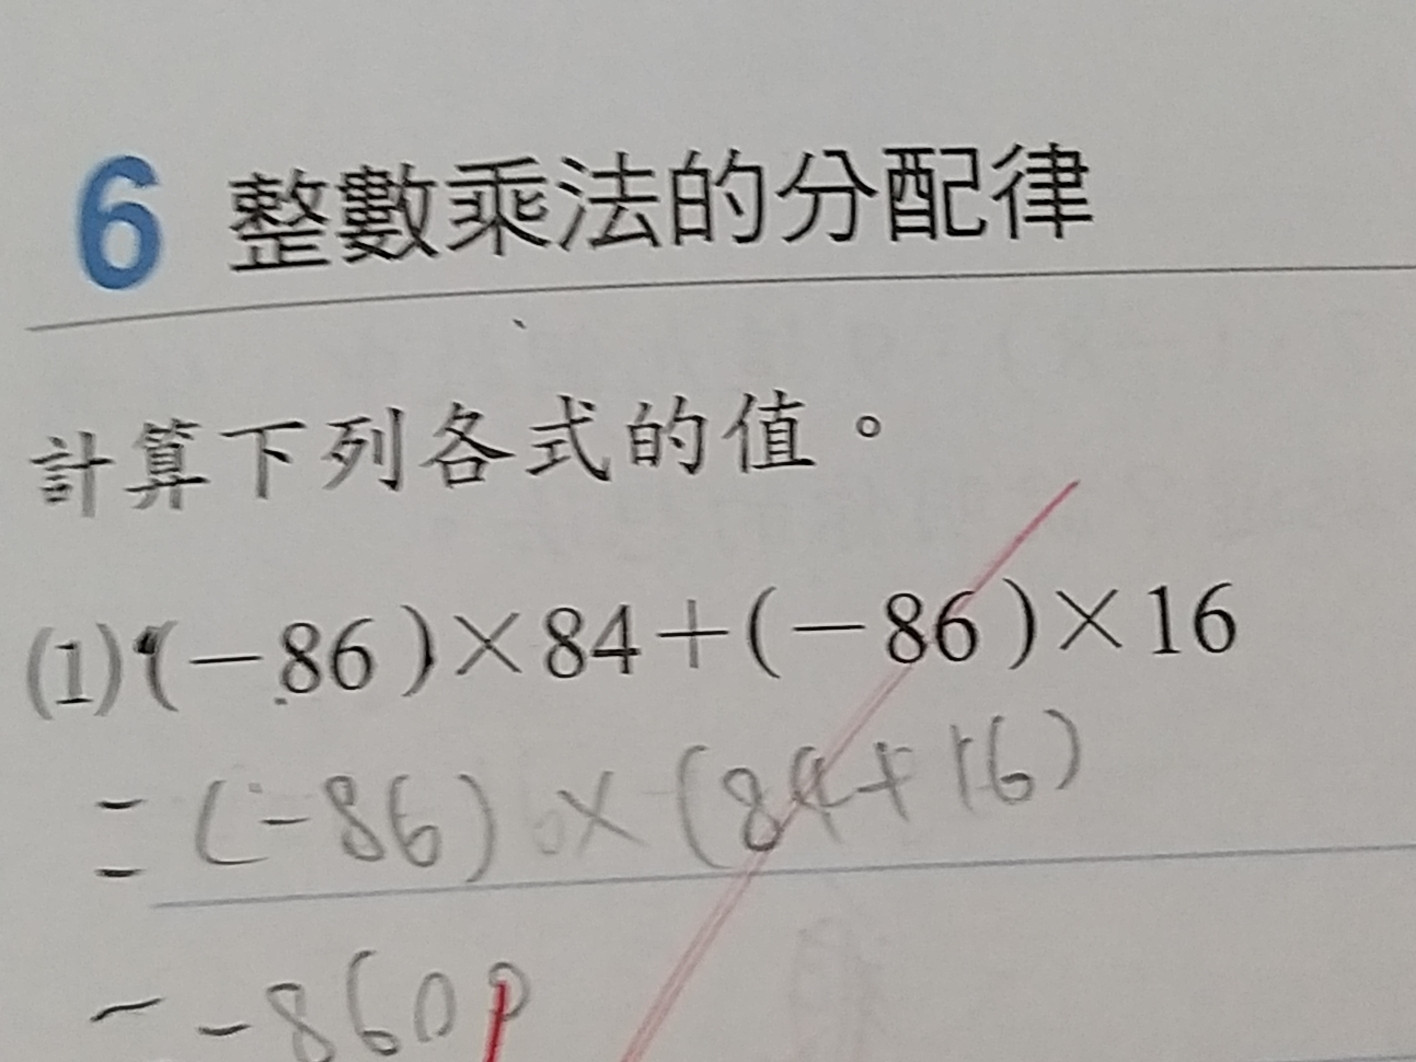 6 整數乘法的分配律
計算下列各式的值。
(1) (－86)×84＋(－86)×16
= (-86) × (84+16)
= -8600